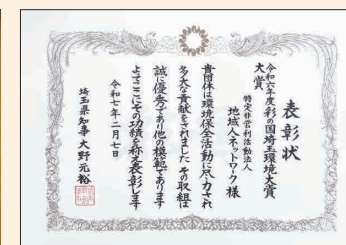 表彰状
令和六年度彩の国埼玉環境大賞
大賞
特定非営利活動法人
地域人ネットワーク様
貴団体は環境保全活動に尽力され
多大な貢献をされました その取組は
誠に優秀であり他の模範であります
よってここにその功績を称え表彰します
令和七年二月七日
埼玉県知事 大野元裕